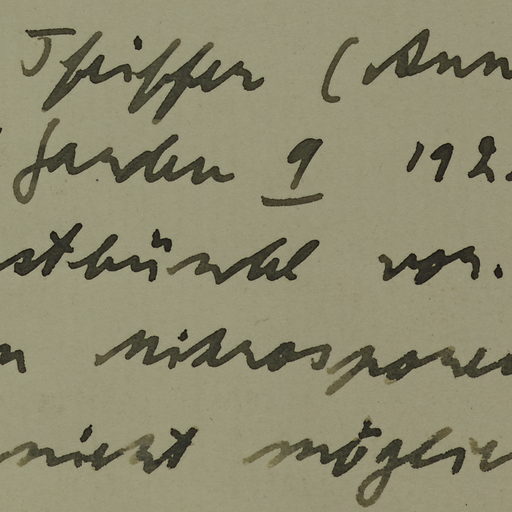 Pfeiffer (Ann
Garden 9 192
stbündel vor.
n Mikrosporen
nicht möglic